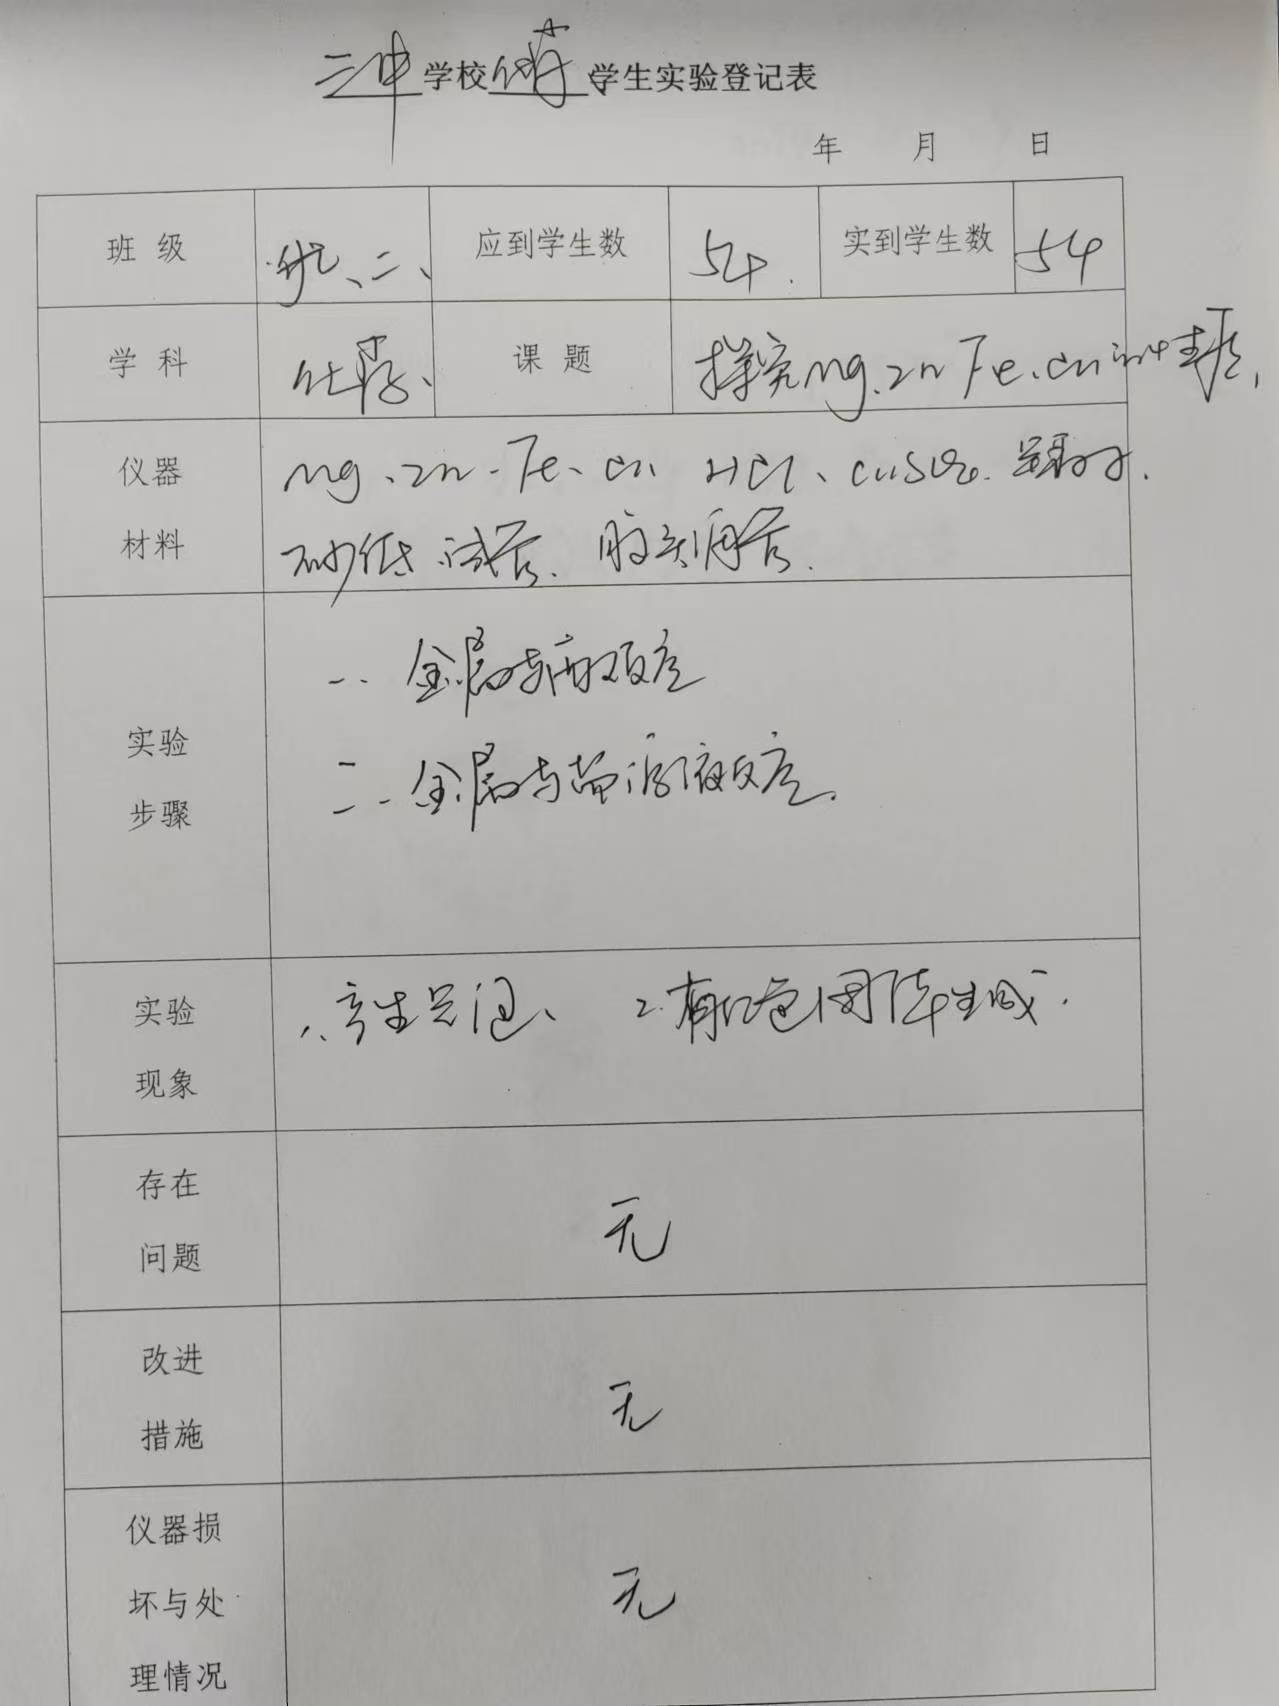 二中学校化学学生实验登记表
年 月 日
班 级 九、二、 应到学生数 54. 实到学生数 54
学 科 化学、 课 题 探究Mg.Zn Fe.Cu
仪器 Mg、Zn、Fe、Cu HCl、CuSO4. 镊子.
材料 砂纸 试管. 胶头滴管.
实验 一. 金属与酸反应
步骤 二. 金属与盐溶液反应.
实验 1、产生气泡、 2.有红色固体生成.
现象
存在
问题 无
改进
措施 无
仪器损
坏与处 无
理情况